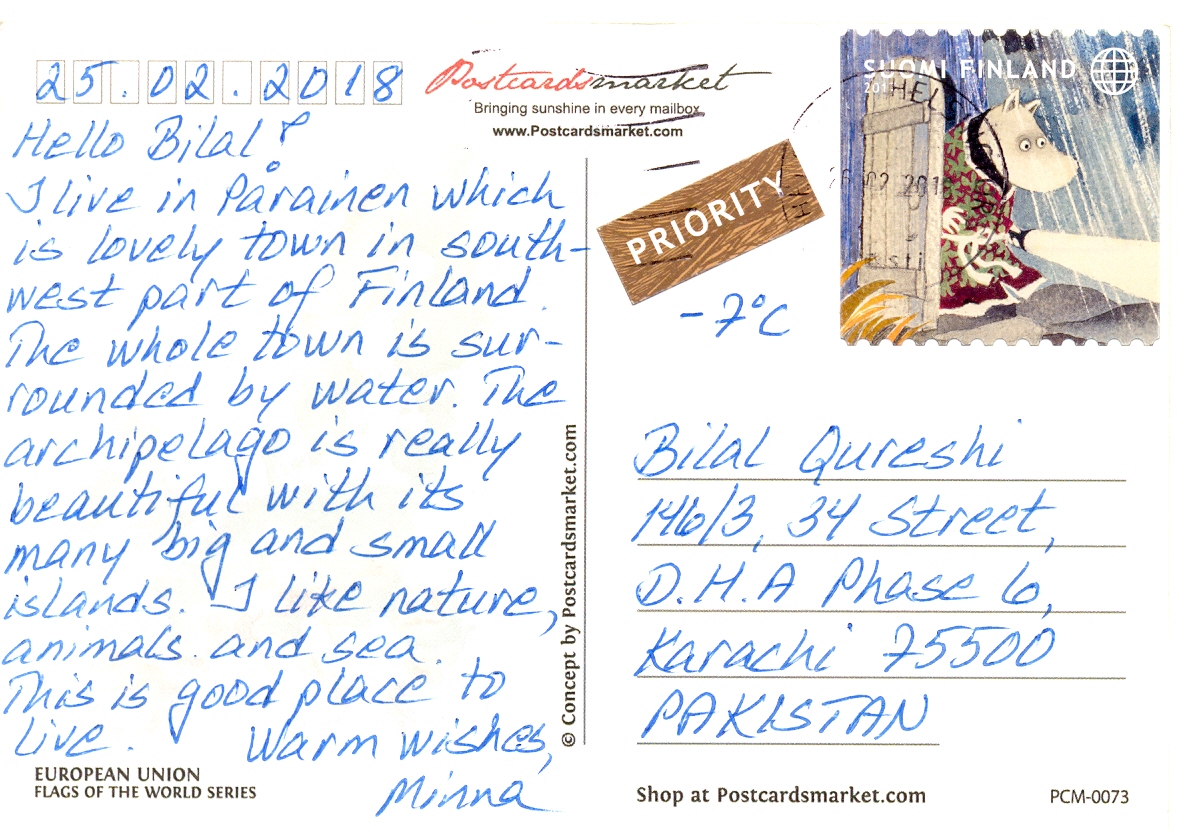 25.02.2018
Postcardsmarket
Bringing sunshine in every mailbox
www.Postcardsmarket.com
SUOMI FINLAND
PRIORITY
-7°C
Hello Bilal!
I live in Parainen which
is lovely town in south-
west part of Finland.
The whole town is sur-
rounded by water. The
archipelago is really
beautiful with its
many big and small
islands. I like nature,
animals and sea.
This is good place to
live. Warm wishes,
Minna
EUROPEAN UNION
FLAGS OF THE WORLD SERIES
© Concept by Postcardsmarket.com
Bilal Qureshi
146/3, 34 Street,
D.H.A Phase 6,
Karachi 75500
PAKISTAN
Shop at Postcardsmarket.com
PCM-0073